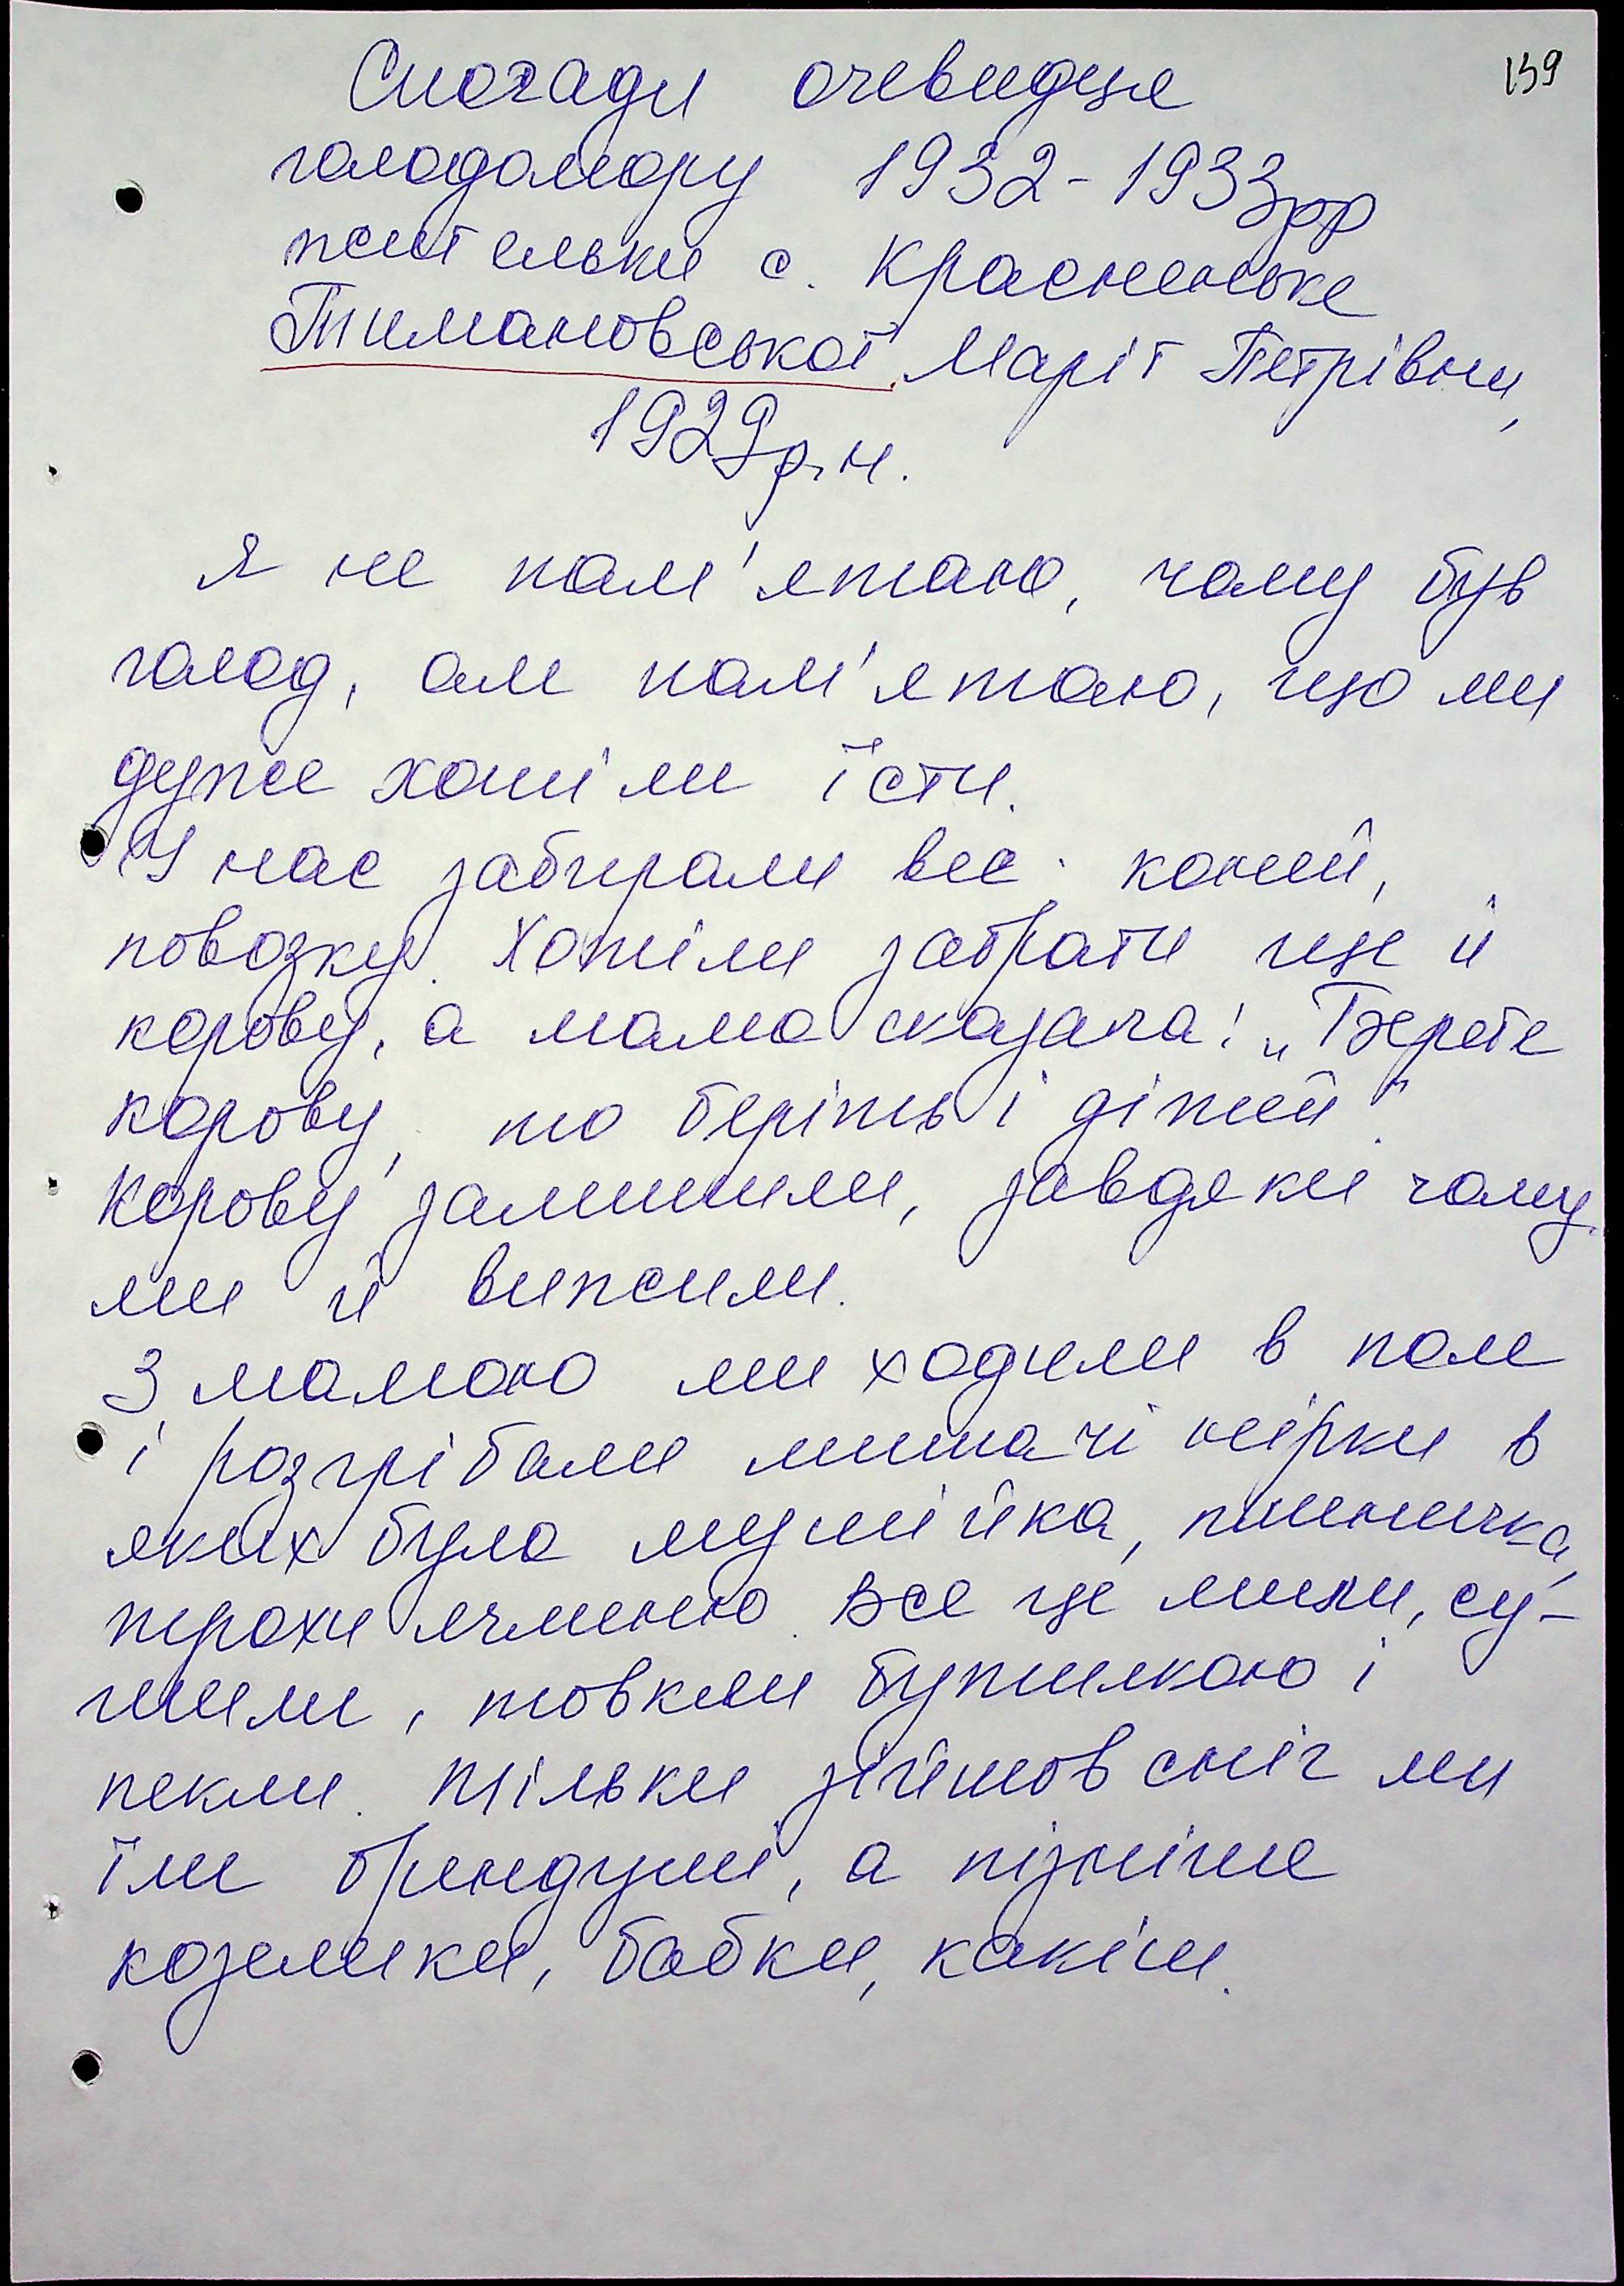 139
Спогади очевидця
голодомору 1932-1933рр
жительки с. Красненьке
Тимановської Марії Петрівни,
1929р.н.
Я не пам'ятаю, чому був
голод, але пам'ятаю, що ми
дуже хотіли їсти.
У нас забирали все: коней,
повозку. Хотіли забрати ще й
корову, а мама сказала: „Берете
корову, то беріть і дітей".
Корову залишили, завдяки чому
ми й вижили.
З мамою ми ходили в поле
і розгрібали мишачі нірки в
яких була мушійка, пшеничка,
трохи ячменю. Все це мили, су-
шили, товкли бутилкою і
пекли. Тільки зійшов сніг ми
їли бриндуші, а пізніше
козелики, бабки, какіши.